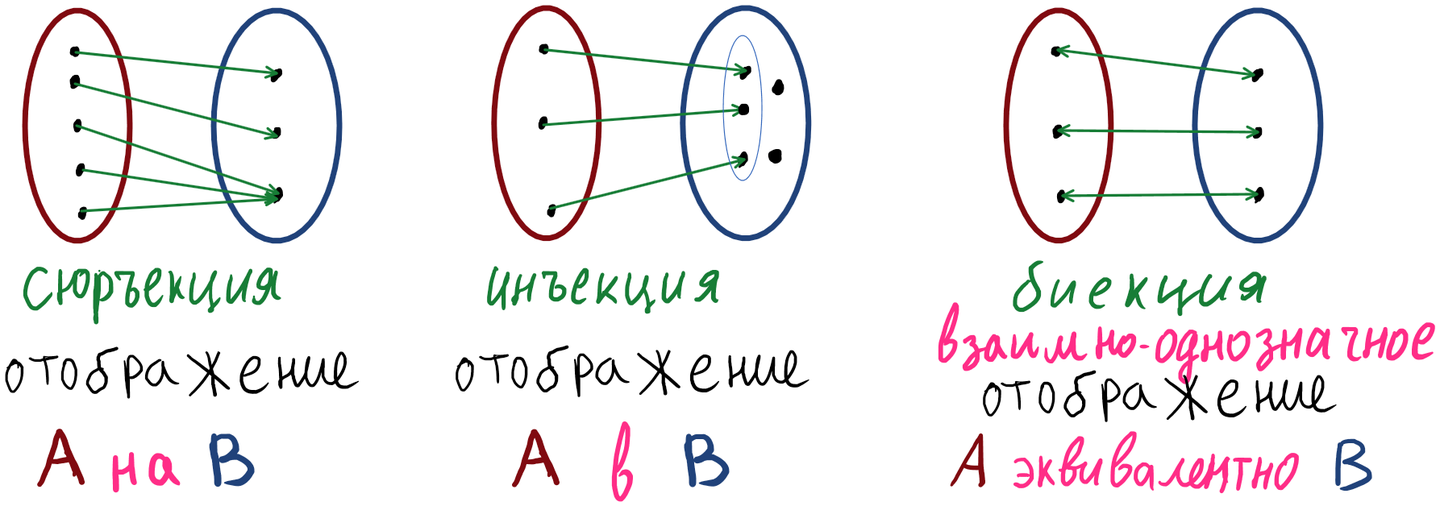 сюръекция
отображение
А на В
инъекция
отображение
А в В
биекция
взаимно-однозначное
отображение
А эквивалентно В